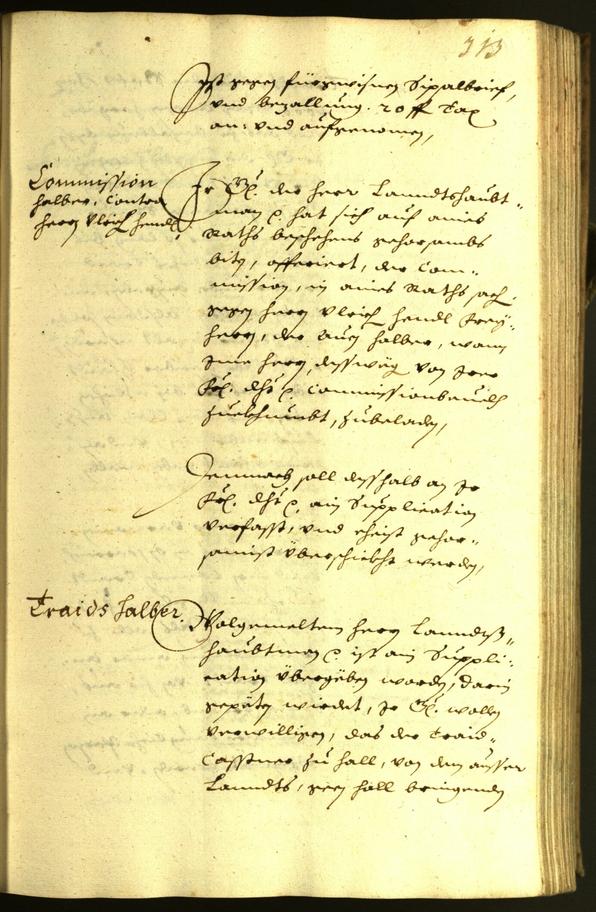 313
Ist gegen fürgewisnen Sipalbrief,
vnd bezallung 20 ff Tax
an: vnd aufgenomen,
Commission
halber, Contra
herrn Vlrich hendl
Ir Gl. der herr Lanndtshaubt=
man p. hat sich auf aines
Raths beschehens gehorsambs
bitn, offeriert, der Com=
mission, in aines Raths sach
gegen herrn Vlrich hendl Frey=
herrn, der Auen halber, wann
Ime herrn, desswegn von Irer
Frl. dht p. Commissionbeuelch
zuekhumbt, zubeladn,
Demnach soll desshalb an Ir
Frl. dht p. ain Supplication
verfasst, vnd ehist gehor=
samist überschickht werden,
Traids halber.
Wolgemeltem herrn Lanndts=
haubtman p. ist ain Suppli=
cation übergeben worden, darin
gepeten wirdet, Ir Gl. wollen
verwilligen, das der Traid=
Casstner zu hall, von dem ausser
Lanndts, geen hall bringenden